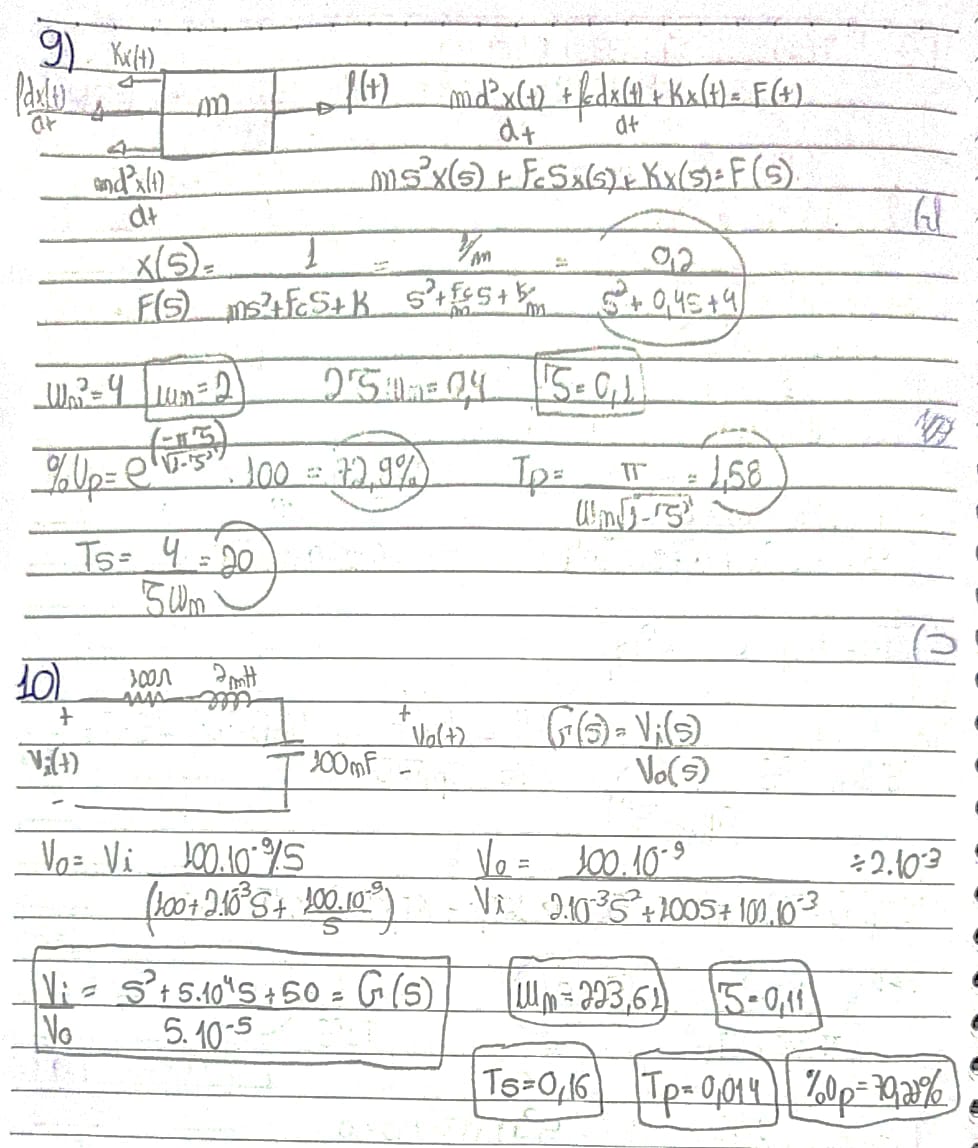 9) Kx(t)
fdx(t)/dt m f(t) md²x(t)/dt + fcdx(t)/dt + Kx(t) = F(t)
md²x(t)/dt ms²x(s) + FcSx(s) + Kx(s) = F(s)
X(S)/F(S) = 1/(ms²+FcS+K) = (1/m)/(S²+(Fc/m)S+K/m) = 0,2/(S²+0,4S+4)
ωn²=4 ωn=2 2ζωn=0,4 ζ=0,1
%Up = e^(-πζ/√1-ζ²) . 100 = 72,9% Tp = π/(ωn√1-ζ²) = 1,58
Ts = 4/(ζωn) = 20
10) 100Ω 2mH
+ + Vo(t) G(s) = Vi(s)/Vo(s)
Vi(t) 100mF -
-
Vo = Vi (100.10⁻⁹/S)/(100+2.10⁻³S+100.10⁻⁹/S) Vo/Vi = 100.10⁻⁹/(2.10⁻³S²+100S+100.10⁻³) ÷2.10⁻³
Vi/Vo = (S²+5.10⁴S+50)/(5.10⁻⁵) = G(s) ωn=223,61 ζ=0,11
Ts=0,16 Tp=0,014 %Up=70,28%